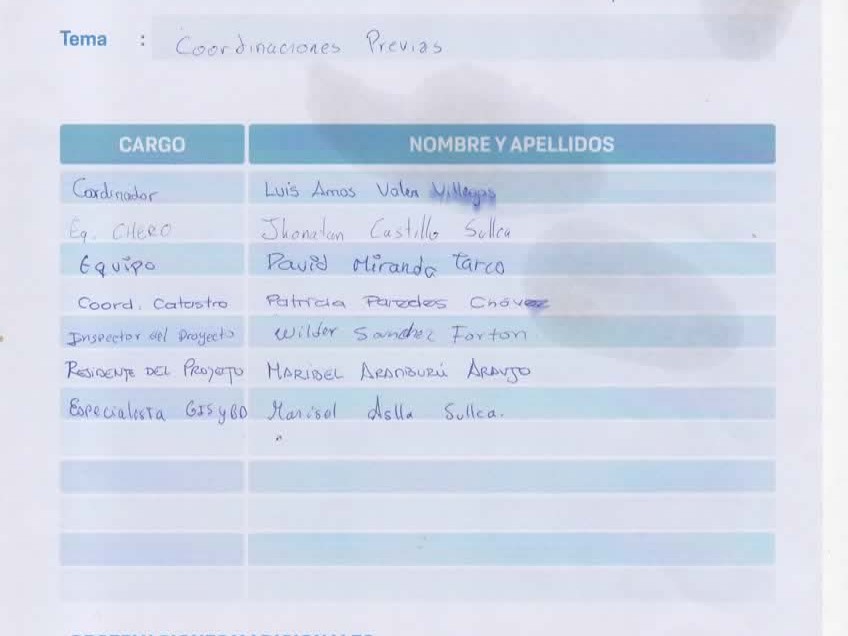 Tema : Coordinaciones Previas
CARGO NOMBRE Y APELLIDOS
Cordinador Luis Amos Valer Villegas
Eq. CHERO Jhonatan Castillo Sullca
Equipo David Miranda Tarco
Coord. Catastro Patricia Paredes Chávez
Inspector del Proyecto Wilder Sanchez Forton
RESIDENTE DEL PROYECTO MARIBEL ARANBURÚ ARAUJO
Especialista GIS y BD Marisol Aslla Sullca.